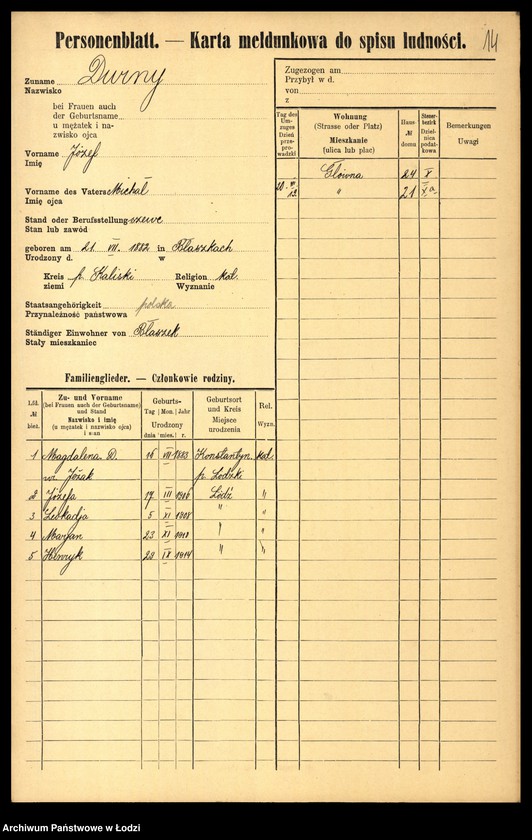 Personenblatt. — Karta meldunkowa do spisu ludności.
14
Zuname Durny
Nazwisko
bei Frauen auch
der Geburtsname
u mężatek i na-
zwisko ojca
Vorname Józef
Imię
Vorname des Vaters Michał
Imię ojca
Stand oder Berufsstellung szewc
Stan lub zawód
geboren am 21. VII. 1882 in Błaszkach
Urodzony d. w
Kreis p. Kaliski Religion kat.
ziemi Wyznanie
Staatsangehörigkeit polska
Przynależność państwowa
Ständiger Einwohner von Błaszek
Stały mieszkaniec
Zugezogen am
Przybył w d.
von
z
Tag des Um-zuges Dzień prze-pro-wadzki
Wohnung (Strasse oder Platz) Mieszkanie (ulica lub plac)
Haus- № domu
Steuer-bezirk Dziel-nica podat-kowa
Bemerkungen Uwagi
Główna 24 X
20. V. " 21 Xa
Familienglieder. — Członkowie rodziny.
Lfd. № bież.
Zu- und Vorname (bei Frauen auch der Geburtsname) und Stand Nazwisko i imię (u mężatek i nazwisko ojca) i stan
Geburts- Tag Mon. Jahr Urodzony dnia mies. r.
Geburtsort und Kreis Miejsce urodzenia
Rel. Wyzn.
1 Magdalena D. 16 VII 1883 Konstantyn. kat.
p. Łódzki
2 Józefa 17 III 1906 Łódź "
3 Leokadja 5 XI 1908 " "
4 Marjan 23 XI 1910 " "
5 Henryk 29 IX 1914 " "
Archiwum Państwowe w Łodzi